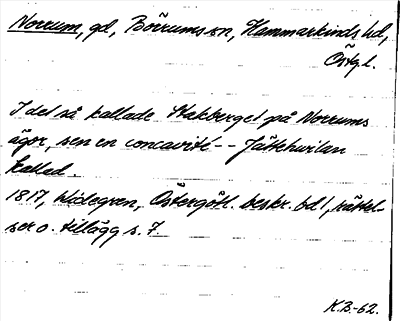 Norrum, gd, Börrums sn, Hammarkinds hd,
Östgl.
I det så kallade Stakberget på Norrums
ägor, ses en concavité -- Jättehvilan
kallad.
1817, Widegren, Östergötl. beskr. bd 1, rättel-
ser o. tillägg s. 7.
K.B.-62.